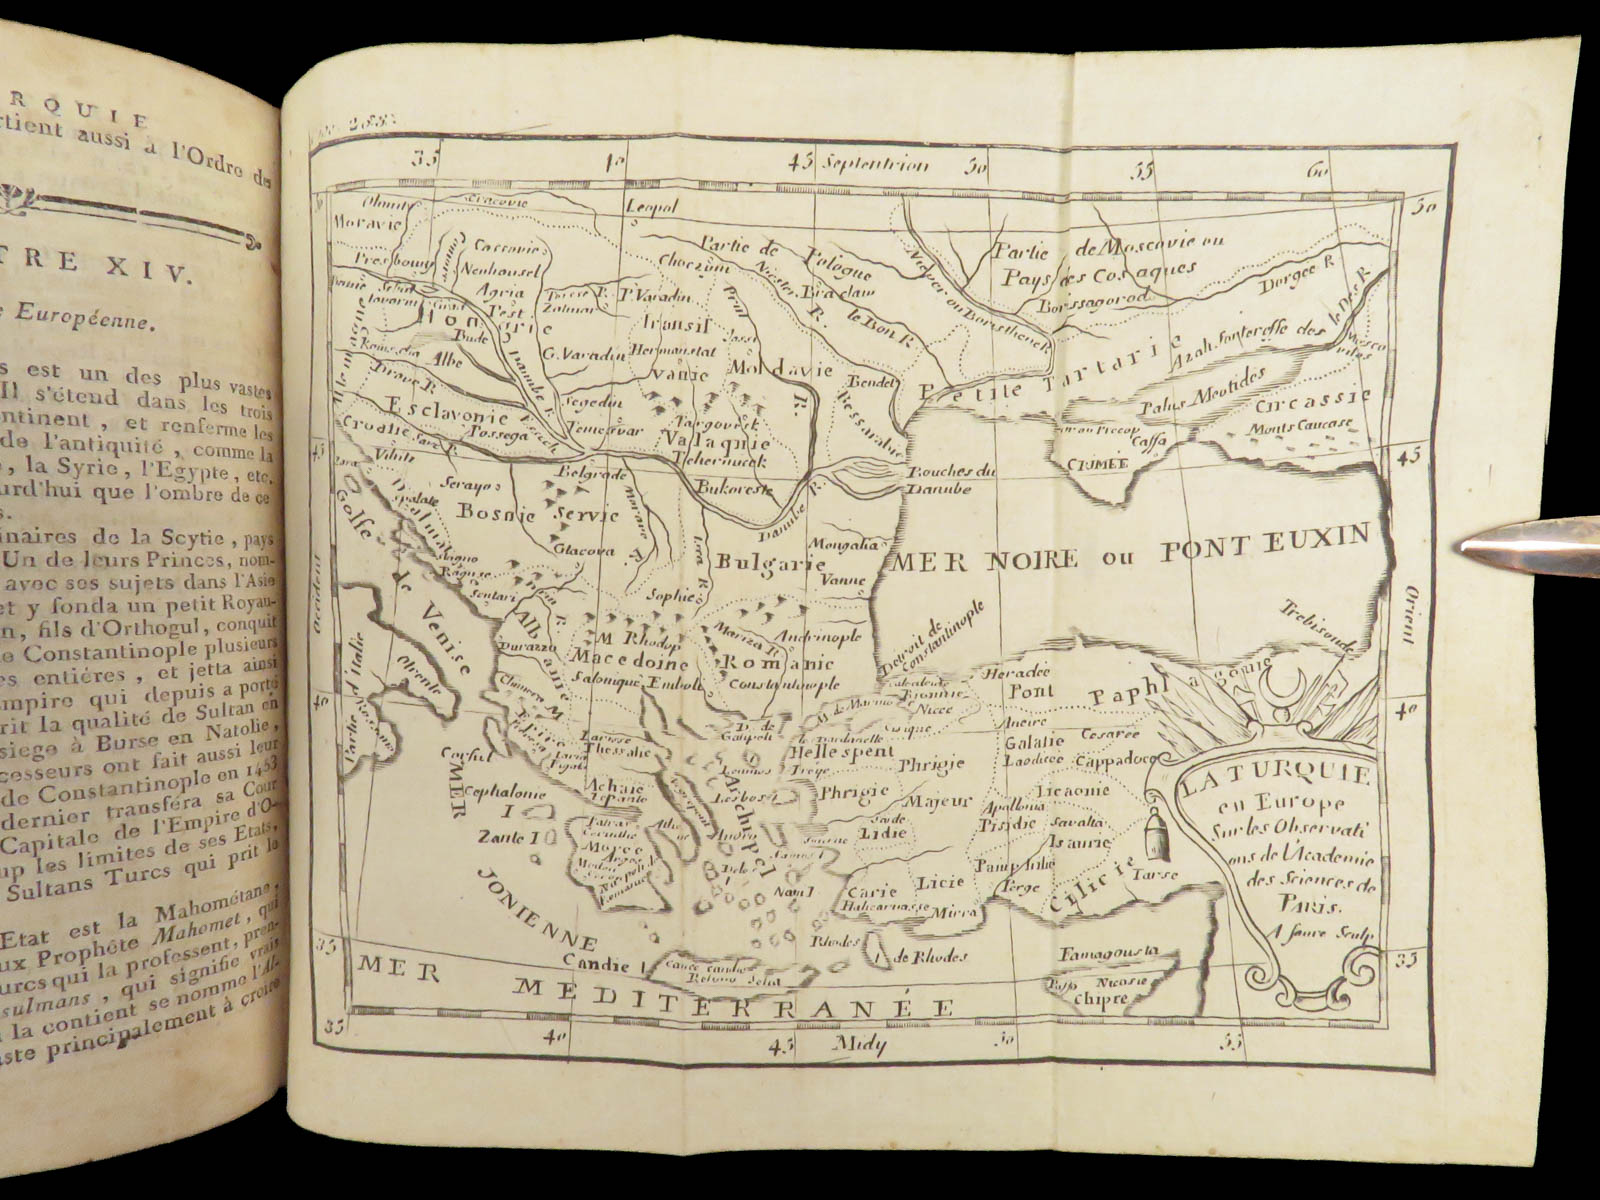 RQUIE
rtient aussi à l'Ordre des
TRE XIV.
Européenne.
s est un des plus vastes
Il s'étend dans les trois
ntinent, et renferme les
de l'antiquité, comme la
, la Syrie, l'Egypte, etc.
urd'hui que l'ombre de ce
s.
inaires de la Scytie, pays
Un de leurs Princes, nom-
avec ses sujets dans l'Asie
et y fonda un petit Royau-
n, fils d'Orthogul, conquit
e Constantinople plusieurs
es entiéres, et jetta ainsi
mpire qui depuis a porté
rit la qualité de Sultan en
siege à Burse en Natolie,
cesseurs ont fait aussi leur
de Constantinople en 1453
dernier transféra sa Cour
Capitale de l'Empire d'O-
up les limites de ses Etats,
Sultans Turcs qui prit le
Etat est la Mahométane,
ux Prophéte Mahomet, qui
urcs qui la professent, pren-
sulmans, qui signifie vrais
la contient se nomme l'Al-
ste principalement à croire
35 40 45 Septentrion 50 55 60
50
Olmutz
Cracovie
Leopol
Moravie
Presbourg
Cassovie
Neuhausel
Agria
Pest
Hongrie
Bude
Albe
Drave R.
Zolnar
P. Varadin
G. Varadin
Hermanstat
Transil
vanie
Choczim
Partie de Pologne
Niester R.
Braclaw
le Bon R
Nieper ou Boristhene R
Partie de Moscovie ou
Pays des Cosaques
Borssagorod
Dorgee R
le Don R
Petite Tartarie
Palus Meotides
Circassie
Monts Caucase
Caffa
CRIMÉE
Moldavie
Jassi
Bender
Bessarabie
Segedin
Temeswar
Esclavonie
Possega
Esseck
Croatie
Danube R.
Targovisk
Valaquie
Bukoreste
Danube R.
Bouches du
Danube
45 45
Belgrade
Serayo
Bosnie Servie
Spalate
Dalmatie
Glacova
Raguse
Scutari
Morave R.
Golfe de Venise
Bulgarie
Mongalia
Vanne
Sophie
MER NOIRE ou PONT EUXIN
Occident
Orient
Detroit de
Constantinople
Trebisonde
Albanie
Durazzo
M Rhodop
Macedoine
Salonique Emboli
Mariza R.
Andrinople
Romanie
Constantinople
40 40
Partie d'Italie
Otrente
Epire
Larisse
Thessalie
Corfu I
Cephalonie I
Zante I
Achaie
Lepante
Morée
Argos
D. de
Galipoli
M. de Marmo
Nicée
Heradée
Pont
Paphlagonie
Ancire
Galatie
Laodicee
Cesarée
Cappadoce
Hellespent
Troye
Phrigie
Phrigie Majeur
Licaonie
Apallonia
Pisidie
Savalia
Isaurie
Lidie
Pamphilie
Perge
Carie
Licie
Mirra
Cilicie
Tarse
Archipel
Lesbos
Andro
Delo
Samos I
Nam I
MER JONIENNE
Candie I
Rhodes
I de Rhodes
Famagousta
Nicosie
Chipre
MER MEDITERRANÉE
35 35
LA TURQUIE
en Europe
Sur les Observati
ons de l'Academie
des Sciences de
PARIS.
A faure Sculp
35 40 45 Midy 50 55